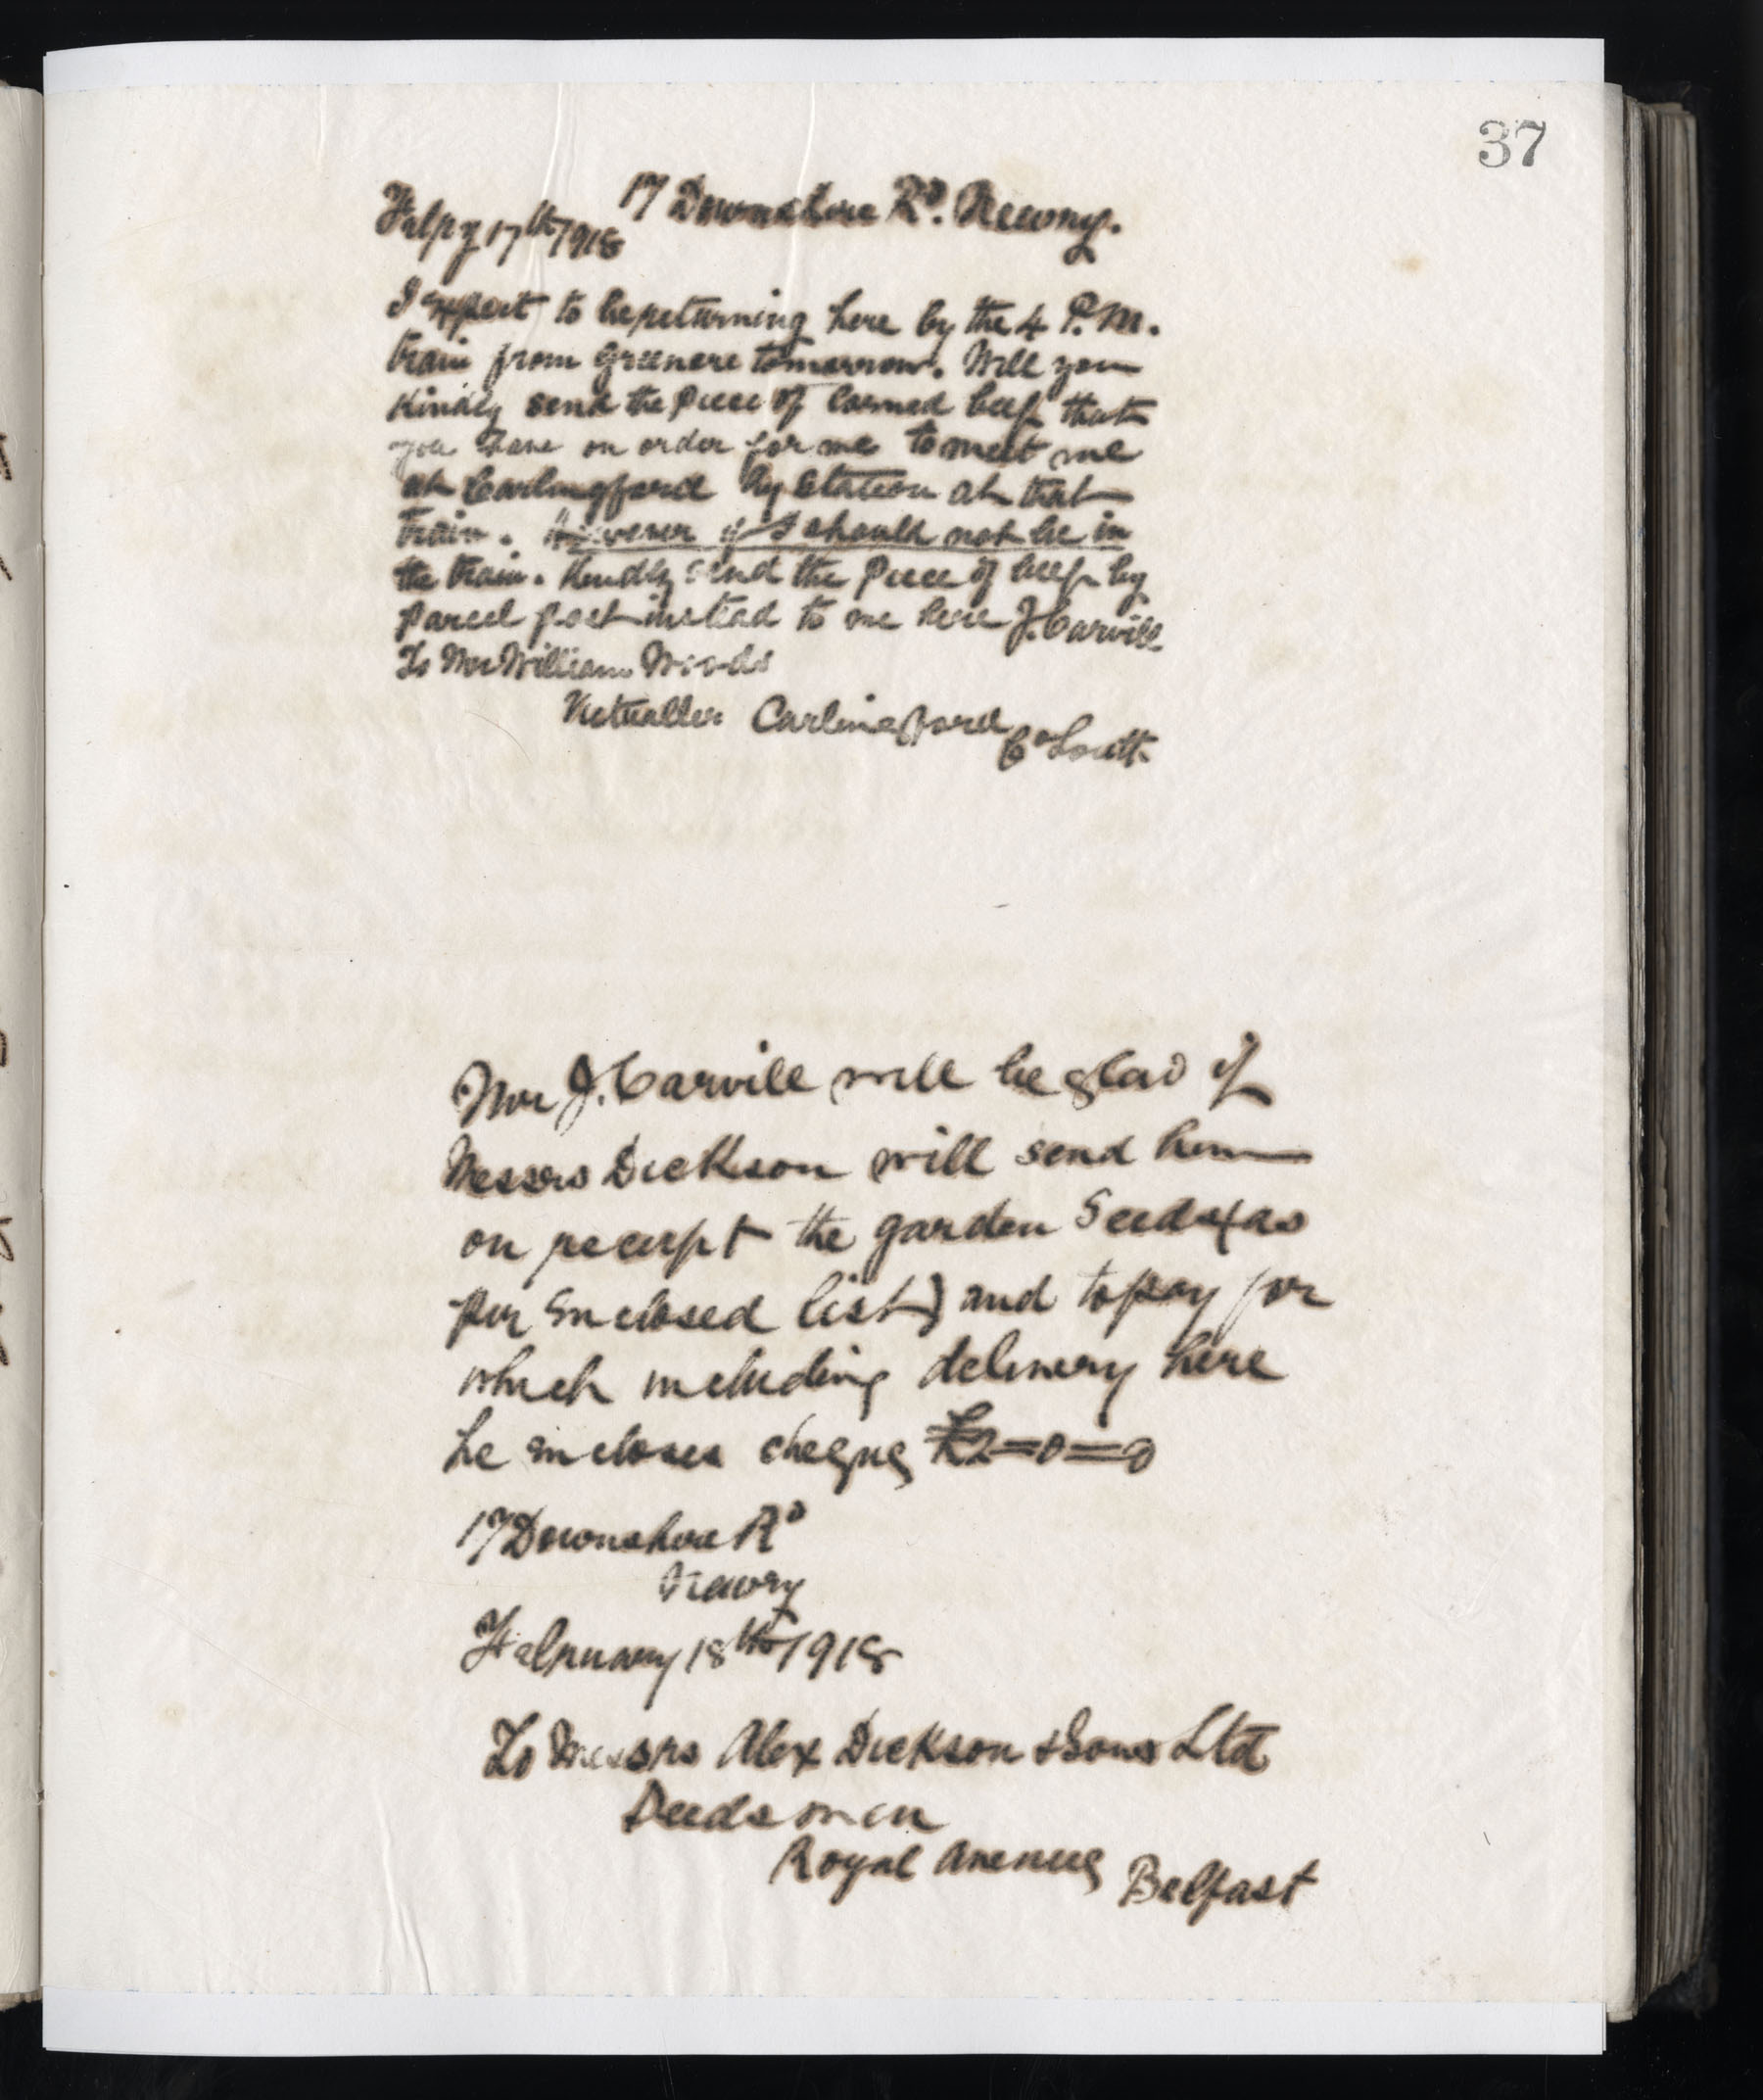 37
17 Downshire Rd. Newry.
Feby 17th/1918
I expect to be returning here by the 4 P.M.
train from Greenore tomorrow. Will you
kindly send the piece of Corned beef that
you have on order for me to meet me
at Carlingford Ry Station at that
train. However if I should not be in
the train. Kindly send the piece of beef by
parcel post instead to me here J. Carvill
To Mr William Woods
Victualler Carlingford
Co Louth
Mr J. Carvill will be glad if
Messrs Dickson will send him
on receipt the garden Seeds (as
per enclosed list) and to pay for
which including delivery here
he encloses cheque £2=0=0
17 Downshire Rd
Newry
February 18th/1918
To Messrs Alex Dickson & Sons Ltd
Seedsmen
Royal Avenue Belfast